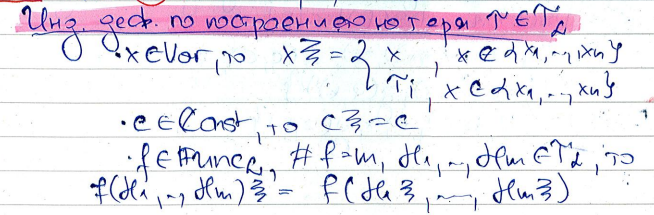 Инд. деф. по построению терма τ∈T_L
· x∈Var, то xξ = { x, x∉{x₁,..,xₙ}
τᵢ, x∈{x₁,..,xₙ}
· c∈Const, то cξ = c
· f∈Func_L, #f=m, t₁,..,tₘ∈T_L, то
f(t₁,..,tₘ)ξ = f(t₁ξ,...,tₘξ)